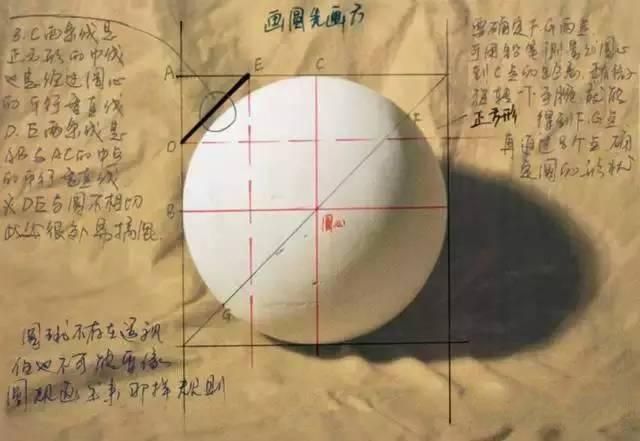 画圆先画方
B.C两条线是
正方形的中线
也是经过圆心
的平行垂直线
D.E两条线是
AB与AC的中点
的平行垂直线
※DE与圆不相切
此处很容易搞混.
A
E
C
F
D
B
圆心
G
要确定F.G两点
可用铅笔测量出圆心
到C点的距离,
正方形
得到F.G点
再通过8个点确
定圆的形状
圆球不存在透视
但也不可能画像
圆规画出来那样规则